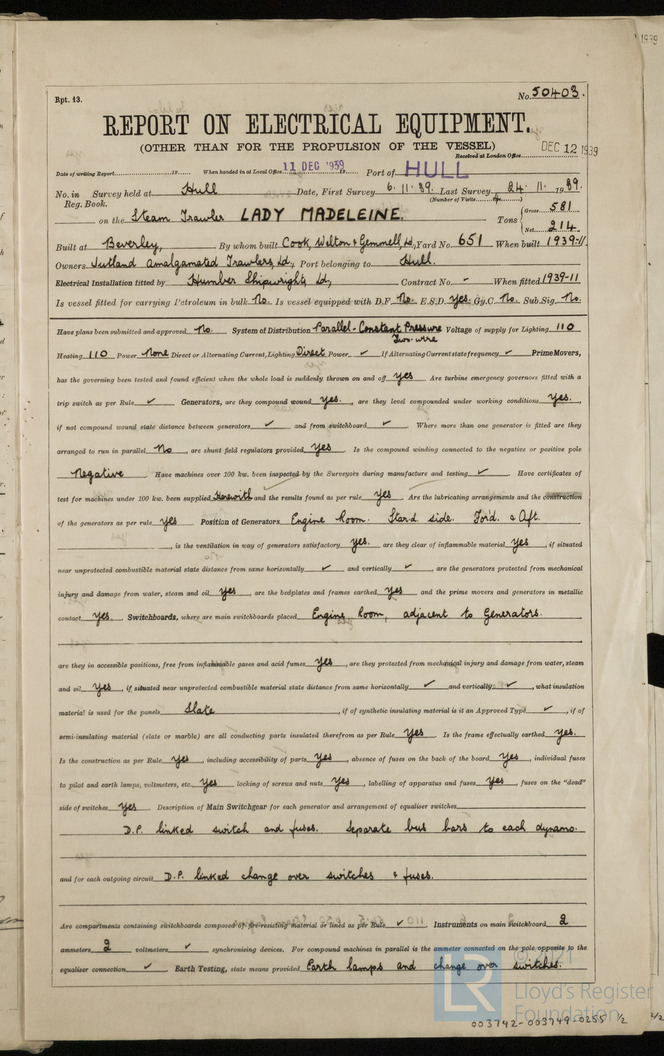 1939
Rpt. 13.
No. 50403.
REPORT ON ELECTRICAL EQUIPMENT.
(OTHER THAN FOR THE PROPULSION OF THE VESSEL)
Received at London Office DEC 12 1939
Date of writing Report 19 When handed in at Local Office 11 DEC 1939 Port of HULL
No. in Survey held at Hull Date, First Survey 6.11.39. Last Survey 24.11.1939.
Reg. Book. (Number of Visits )
on the Steam Trawler LADY MADELEINE. Tons { Gross 581
Net 214
Built at Beverley, By whom built Cook, Welton & Gemmell, Ld, Yard No. 651 When built 1939-11.
Owners Jutland Amalgamated Trawlers, Ld, Port belonging to Hull.
Electrical Installation fitted by Humber Shipwrights, Ld, Contract No. - When fitted 1939-11
Is vessel fitted for carrying Petroleum in bulk No. Is vessel equipped with D.F. No. E.S.D. Yes. Gy.C. No. Sub.Sig. No.
Have plans been submitted and approved. No. System of Distribution Parallel-Constant Pressure Voltage of supply for Lighting 110
Two-wire
Heating 110 Power None Direct or Alternating Current, Lighting Direct Power ✓ If Alternating Current state frequency ✓ Prime Movers,
has the governing been tested and found efficient when the whole load is suddenly thrown on and off yes Are turbine emergency governors fitted with a
trip switch as per Rule ✓ Generators, are they compound wound yes., are they level compounded under working conditions yes.,
if not compound wound state distance between generators ✓ and from switchboard ✓ Where more than one generator is fitted are they
arranged to run in parallel No, are shunt field regulators provided yes Is the compound winding connected to the negative or positive pole
Negative Have machines over 100 kw. been inspected by the Surveyors during manufacture and testing ✓ Have certificates of
test for machines under 100 kw. been supplied Herewith and the results found as per rule yes Are the lubricating arrangements and the construction
of the generators as per rule yes Position of Generators Engine Room. Starb side. For'd. & Aft.
, is the ventilation in way of generators satisfactory yes. are they clear of inflammable material yes, if situated
near unprotected combustible material state distance from same horizontally ✓ and vertically ✓, are the generators protected from mechanical
injury and damage from water, steam and oil yes, are the bedplates and frames earthed yes and the prime movers and generators in metallic
contact yes. Switchboards, where are main switchboards placed Engine Room, adjacent to Generators.
are they in accessible positions, free from inflammable gases and acid fumes yes, are they protected from mechanical injury and damage from water, steam
and oil yes, if situated near unprotected combustible material state distance from same horizontally ✓ and vertically ✓, what insulation
material is used for the panels Slate, if of synthetic insulating material is it an Approved Type ✓, if of
semi-insulating material (slate or marble) are all conducting parts insulated therefrom as per Rule yes Is the frame effectually earthed yes.
Is the construction as per Rule yes, including accessibility of parts yes, absence of fuses on the back of the board yes, individual fuses
to pilot and earth lamps, voltmeters, etc. yes locking of screws and nuts yes, labelling of apparatus and fuses yes, fuses on the "dead"
side of switches yes Description of Main Switchgear for each generator and arrangement of equaliser switches
D.P. linked switch and fuses. Separate bus bars to each dynamo.
and for each outgoing circuit D.P. linked change over switches & fuses.
Are compartments containing switchboards composed of fire-resisting material or lined as per Rule ✓ Instruments on main switchboard 2
ammeters 2 voltmeters ✓ synchronising devices. For compound machines in parallel is the ammeter connected on the pole opposite to the
equaliser connection ✓ Earth Testing, state means provided Earth lamps and change over switches.
LR © 2021
Lloyd's Register
Foundation
003742-003749-0255 1/2
2/2